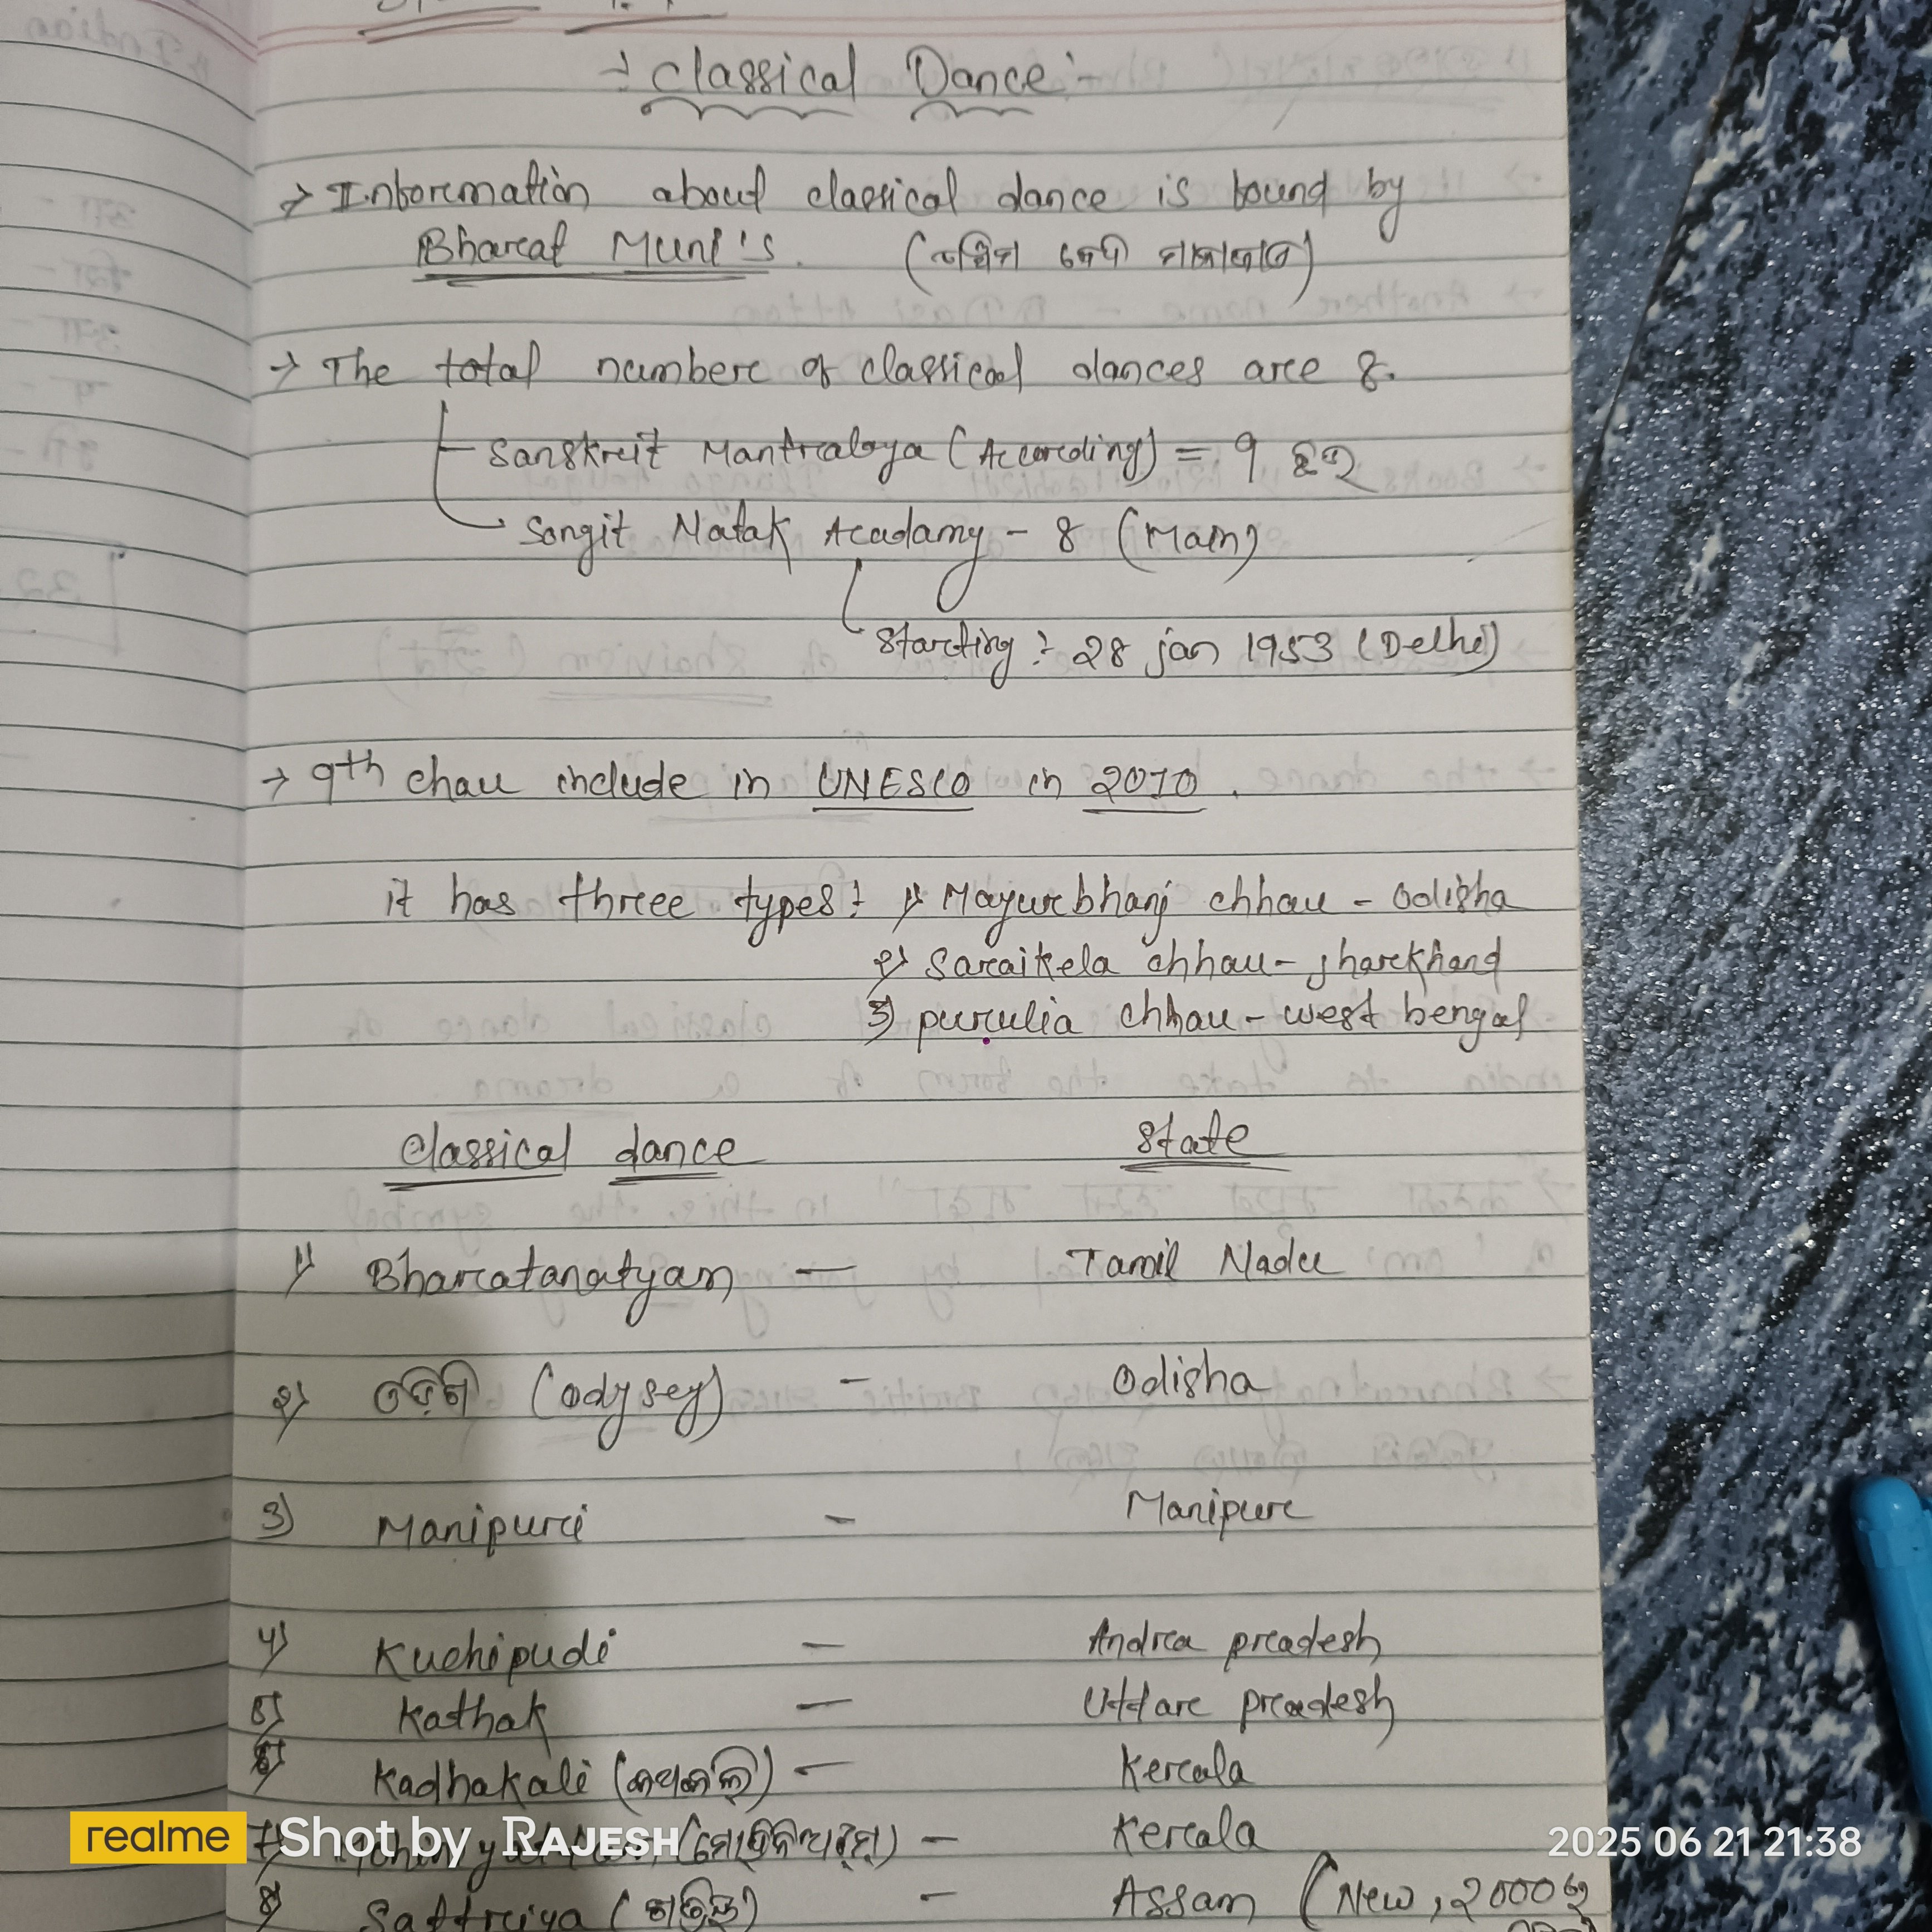 Classical Dance :-
→ Information about classical dance is found by
Bharat Muni's. (
→ The total number of classical dances are 8.
Sanskrit Mantralaya (According) = 9 ଛଉ
Sangit Natak Acadamy - 8 (Main)
Starting :- 28 jan 1953 (Delhi)
→ 9th chau include in UNESCO in 2010.
it has three types : 1) Mayurbhanj chhau - Odisha
2) Saraikela chhau - jharkhand
3) purulia chhau - west bengal
Classical dance State
1) Bharatanatyam — Tamil Nadu
2) ଓଡ଼ିଶୀ (odysey) - Odisha
3) Manipuri - Manipur
4) Kuchipudi — Andra pradesh
5) Kathak — Uttar pradesh
6) Kadhakali (କଥକଳି) — Kerala
realme Shot by RAJESH
7) — Kerala
2025 06 21 21:38
8) Sattriya - Assam (New, 2000